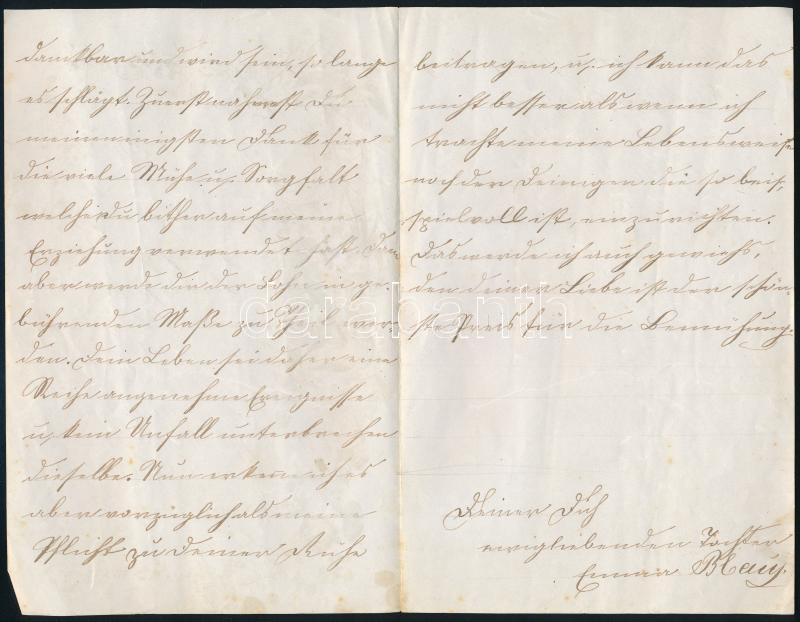 dankbar und wird sein, so lange
es schlägt. Zuerst nahmst Du
meinen innigsten Dank für
die viele Mühe u. Sorgfalt
welche du bisher auf meine
Erziehung verwendet hast. Dann
aber werde dir der Lohn in ge-
bührenden Maße zu Theil wer-
den. Dein Leben sei daher eine
Reihe angenehme Ereignisse
u. kein Unfall unterbrechen
dieselbe. Nun erkenne ich es
aber vorzüglich als meine
Pflicht zu Deiner Ruhe
beitragen, u. ich kann das
nicht besser als wenn ich
trachte meine Lebensweise
nach der Deinigen die so bei-
spielvoll ist, einzurichten.
Das werde ich auch gewiss,
den deiner Liebe ist der schön-
ste Preis für die Bemühung.
Deiner Dich
ewigliebenden Tochter
Emma Blau.
darabanth